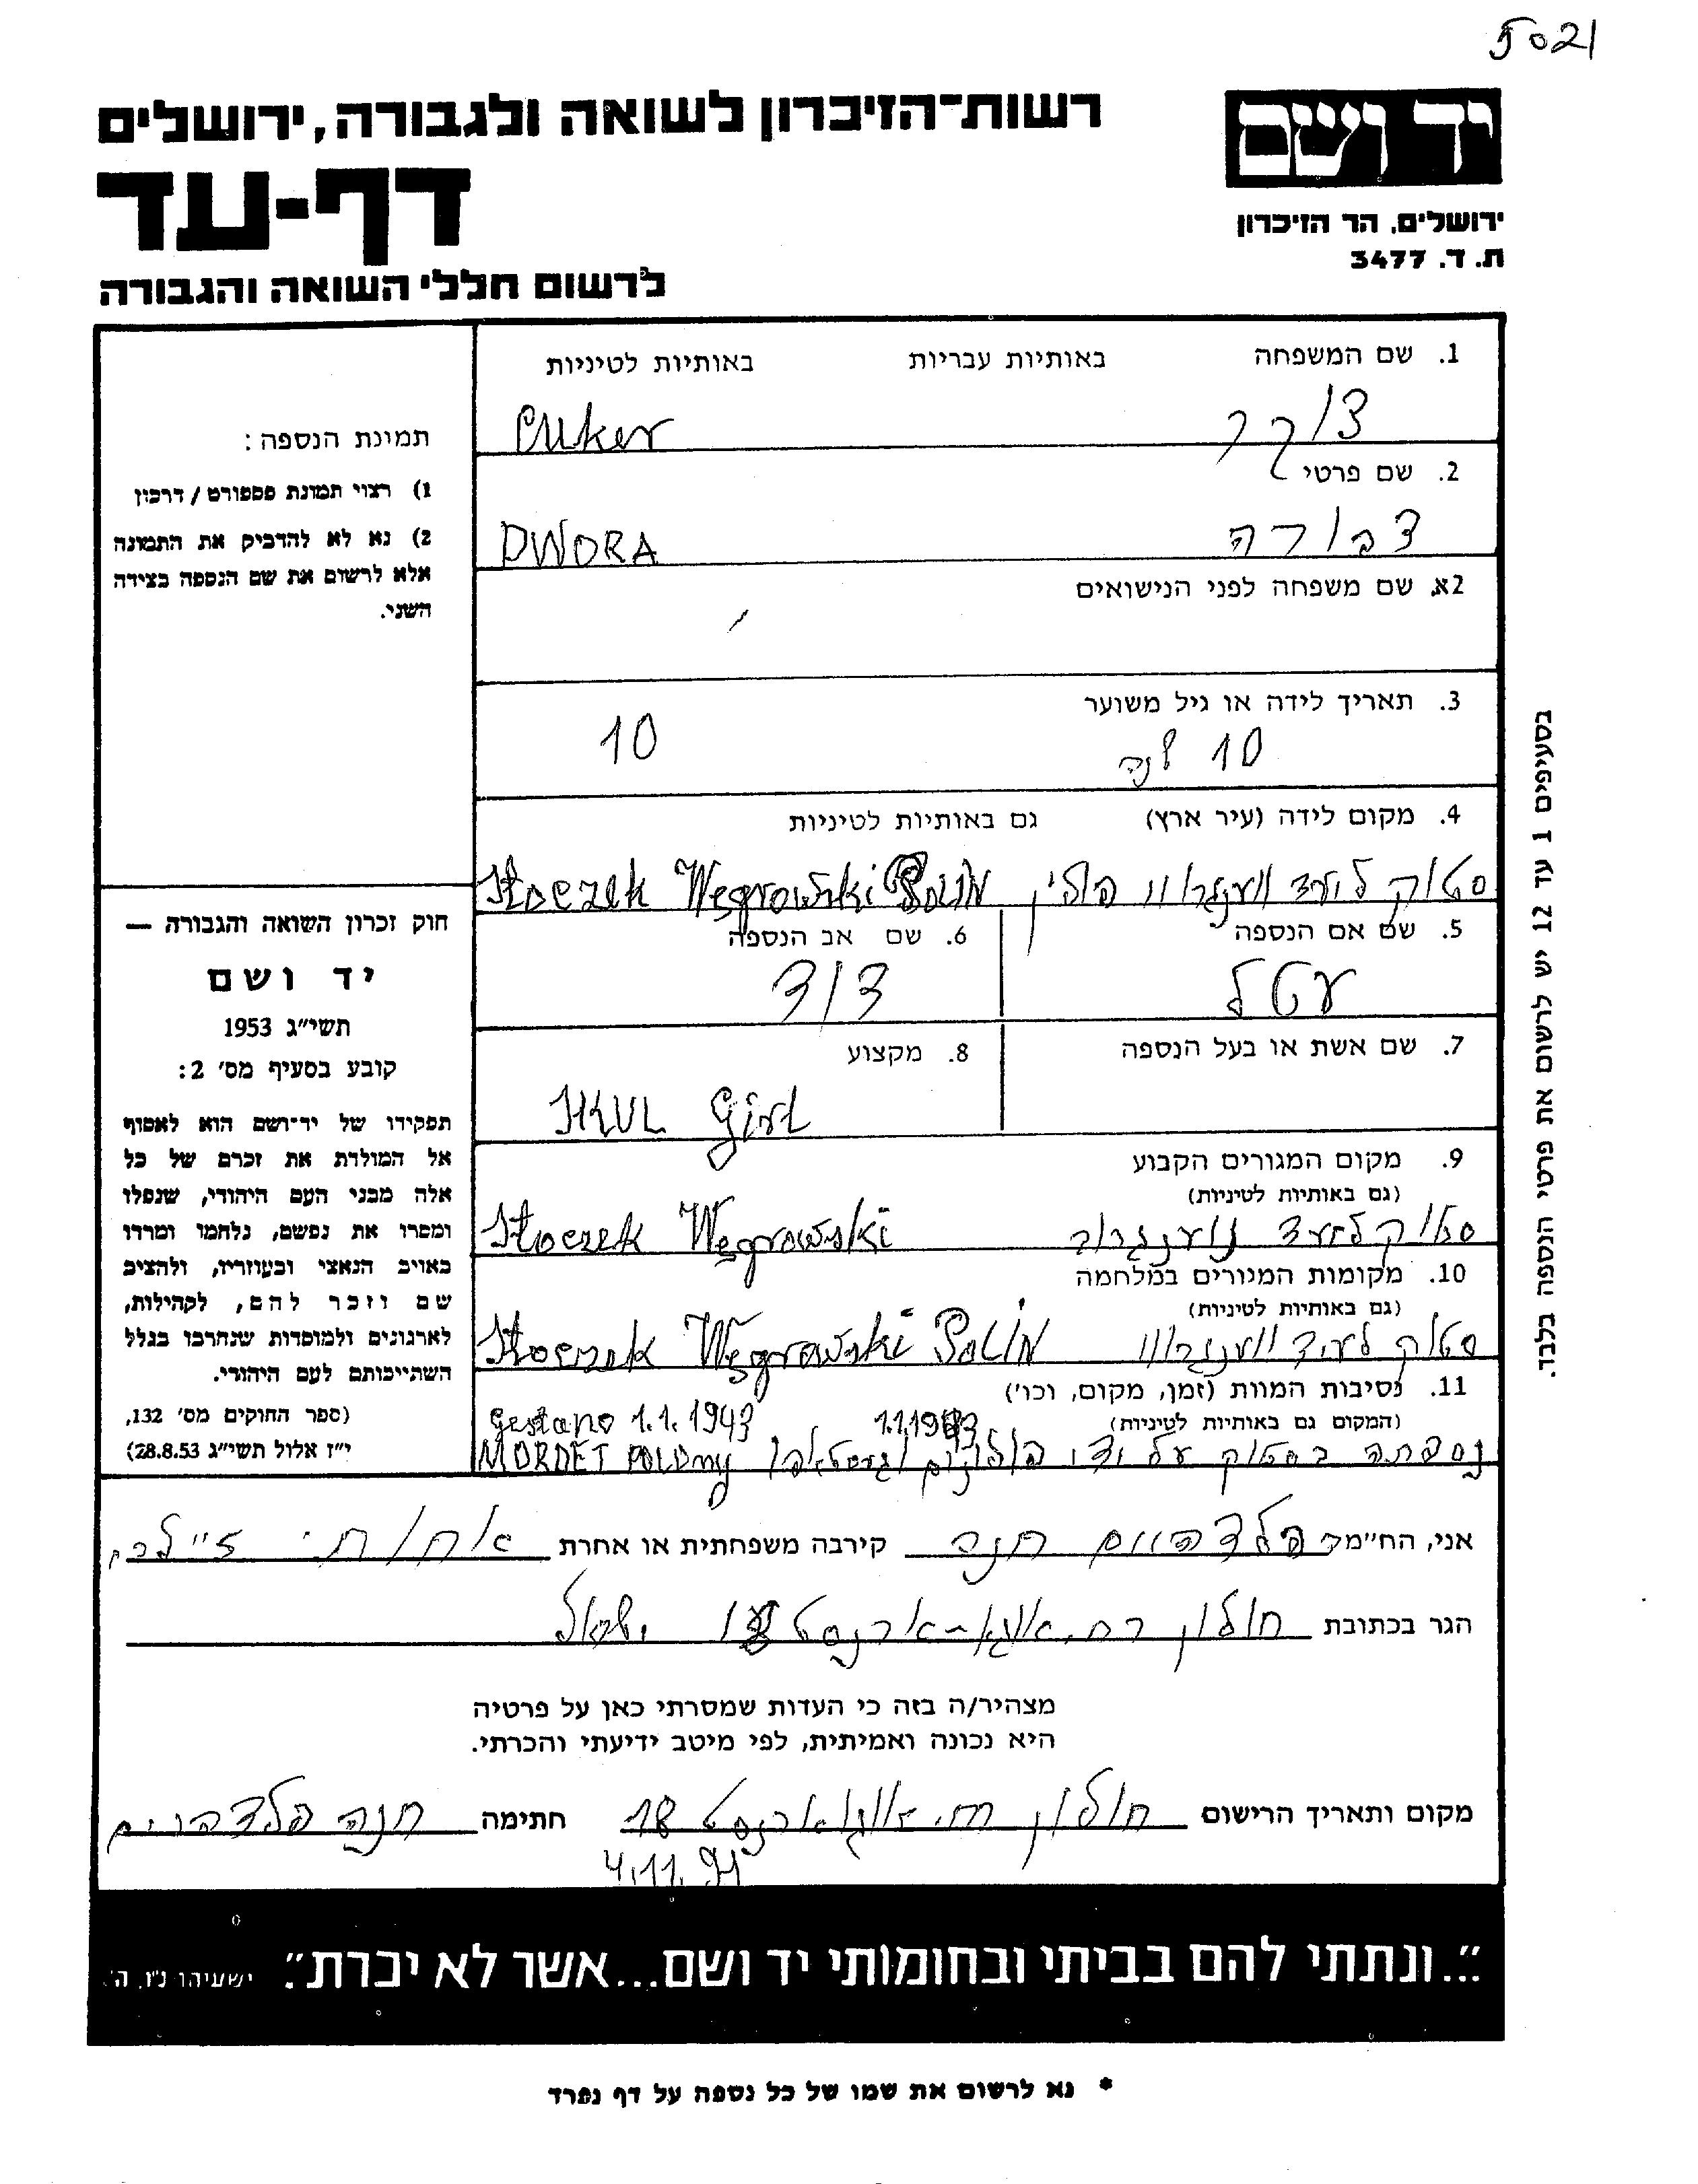 5021
רשות-הזיכרון לשואה ולגבורה, ירושלים
יד ושם
דף-עד
ירושלים, הר הזיכרון
ת. ד. 3477
לרשום חללי השואה והגבורה
1. שם המשפחה באותיות עבריות באותיות לטיניות
צוקר Cuker
2. שם פרטי
דבורה DWORA
2א. שם משפחה לפני הנישואים
3. תאריך לידה או גיל משוער
10 שנה 10
4. מקום לידה (עיר ארץ) גם באותיות לטיניות
סטוק ווענגרוו פולין Stoczek Węgrowski Polin
5. שם אם הנספה 6. שם אב הנספה
עטל דוד
7. שם אשת או בעל הנספה 8. מקצוע
SKUL Girl
9. מקום המגורים הקבוע
(גם באותיות לטיניות)
סטוק Stoczek Węgrowski
10. מקומות המגורים במלחמה
(גם באותיות לטיניות)
סטוק ווענגרוו Stoczek Węgrowski Polin
11. נסיבות המוות (זמן, מקום, וכו')
(המקום גם באותיות לטיניות) 1.1.1943 Gestano 1.1.1943
נספתה בסטוק על ידי פולנים וגסטאפו MORDET POLONY
תמונת הנספה:
1) רצוי תמונת פספורט / דרכון
2) נא לא להדביק את התמונה
אלא לרשום את שם הנספה בצידה
השני.
חוק זכרון השואה והגבורה —
יד ושם
תשי״ג 1953
קובע בסעיף מס׳ 2:
תפקידו של יד-ושם הוא לאסוף
אל המולדת את זכרם של כל
אלה מבני העם היהודי, שנפלו
ומסרו את נפשם, נלחמו ומרדו
באויב הנאצי ובעוזריו, ולהציב
שם וזכר להם, לקהילות,
לארגונים ולמוסדות שנחרבו בגלל
השתייכותם לעם היהודי.
(ספר החוקים מס׳ 132,
י״ז אלול תשי״ג 28.8.53)
בסעיפים 1 עד 12 יש לרשום את פרטי הנספה בלבד.
אני, הח״מ פלדהיים חנה קירבה משפחתית או אחרת אחותי
הגר בכתובת חולון רח. ישראל
מצהיר/ה בזה כי העדות שמסרתי כאן על פרטיה
היא נכונה ואמיתית, לפי מיטב ידיעתי והכרתי.
מקום ותאריך הרישום חולון 18 חתימה חנה פלדהיים
4.11.91
״...ונתתי להם בביתי ובחומותי יד ושם...אשר לא יכרת״. ישעיהו נ״ו, ה׳.
* נא לרשום את שמו של כל נספה על דף נפרד